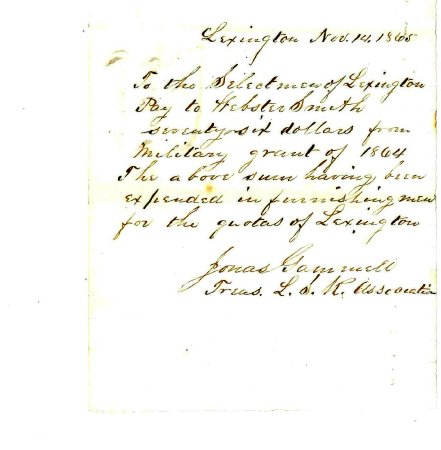 Lexington Nov. 14, 1865
To the Selectmen of Lexington
Pay to Webster Smith
seventy-six dollars from
Military grant of 1864
The above sum having been
expended in furnishing men
for the quotas of Lexington
Jonas Gammell
Treas. L. S. R. Association